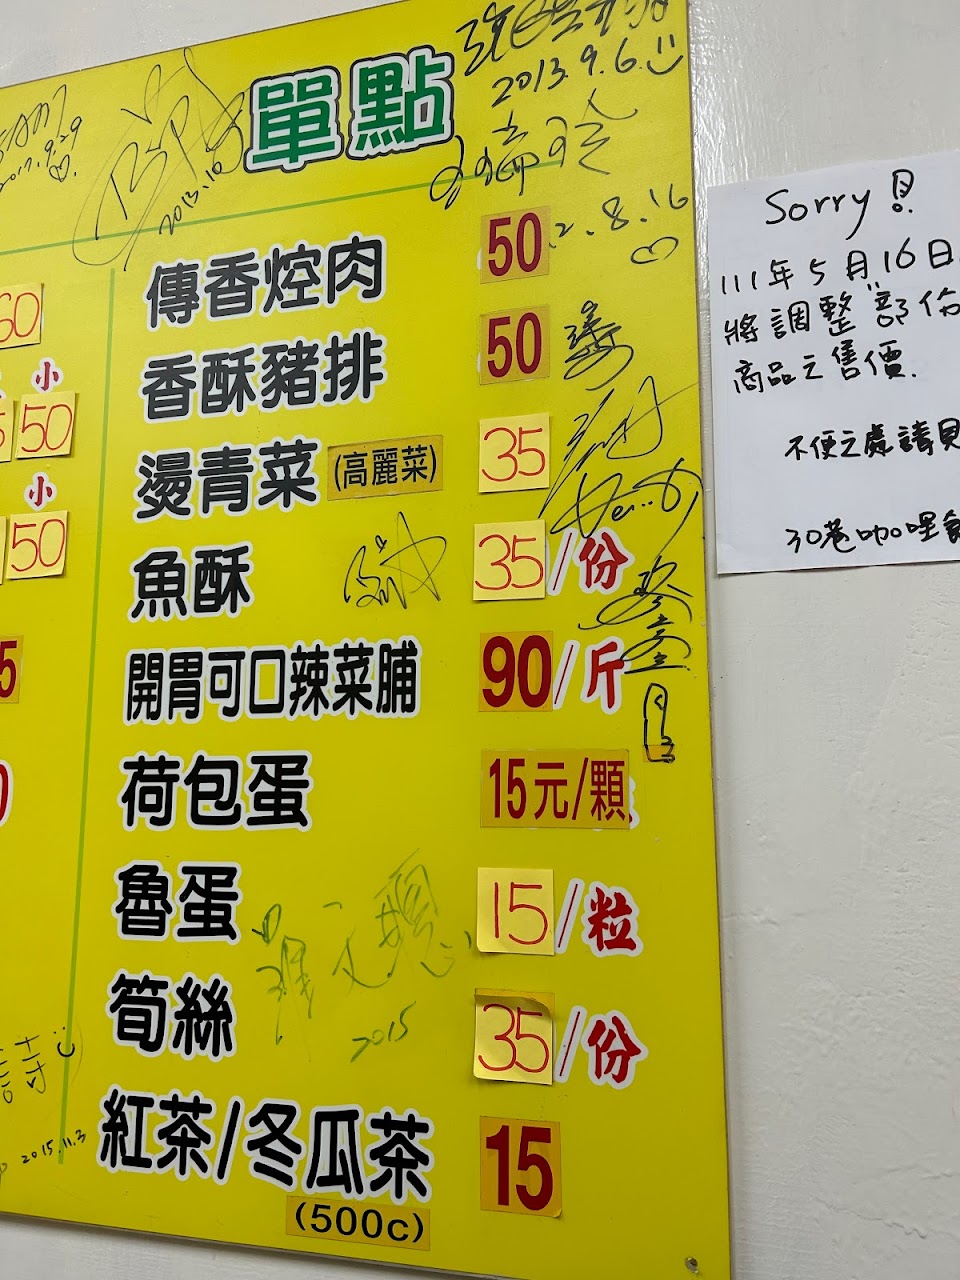 單點
傳香焢肉 50
香酥豬排 50
燙青菜 (高麗菜) 35
魚酥 35/份
開胃可口辣菜脯 90/斤
荷包蛋 15元/顆
魯蛋 15/粒
筍絲 35/份
紅茶/冬瓜茶 15
(500c)
60
小
50
小
50
5
0
2013.9.6
2013.10
2.8.16
2015
2015.11.3
Sorry!
111年5月16日
將調整"部份
商品之售價.
不便之處請見
30巷咖哩